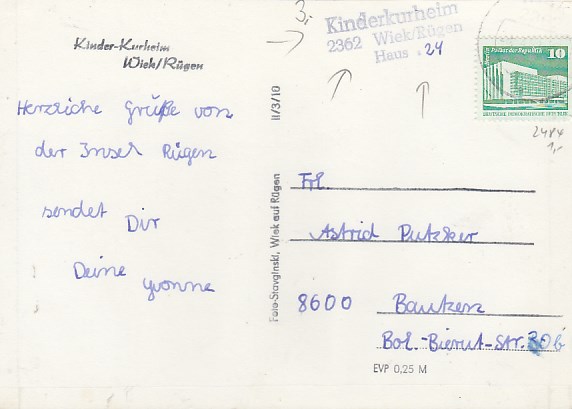 Kinder-Kurheim
Wiek/Rügen
Herzliche Grüße von
der Insel Rügen
sendet Dir
Deine Yvonne
II/3/10
Foto-Stavginski, Wiek auf Rügen
3,-
Kinderkurheim
2362 Wiek/Rügen
Haus . 24
Berlin Palast der Republik 10
DEUTSCHE DEMOKRATISCHE REPUBLIK
2484
1,-
Frl.
Astrid Putzker
8600 Bautzen
Bol.-Bierut-Str. 30b
EVP 0,25 M